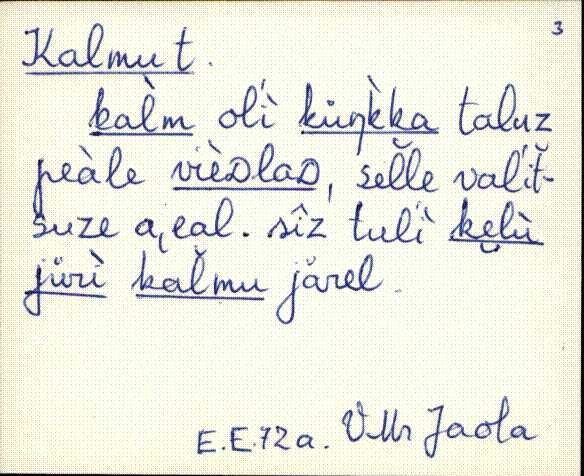 3
Kalmu t.
kal̀m oĺì kùŋk̀ka taluz
peàle vièᴅlaᴅ, sel̆le valít̆-
suze a̡eal. sîz tulì kẹlù
jùrì kal̆mu järel.
E.E. 72a. V Mr Jaola